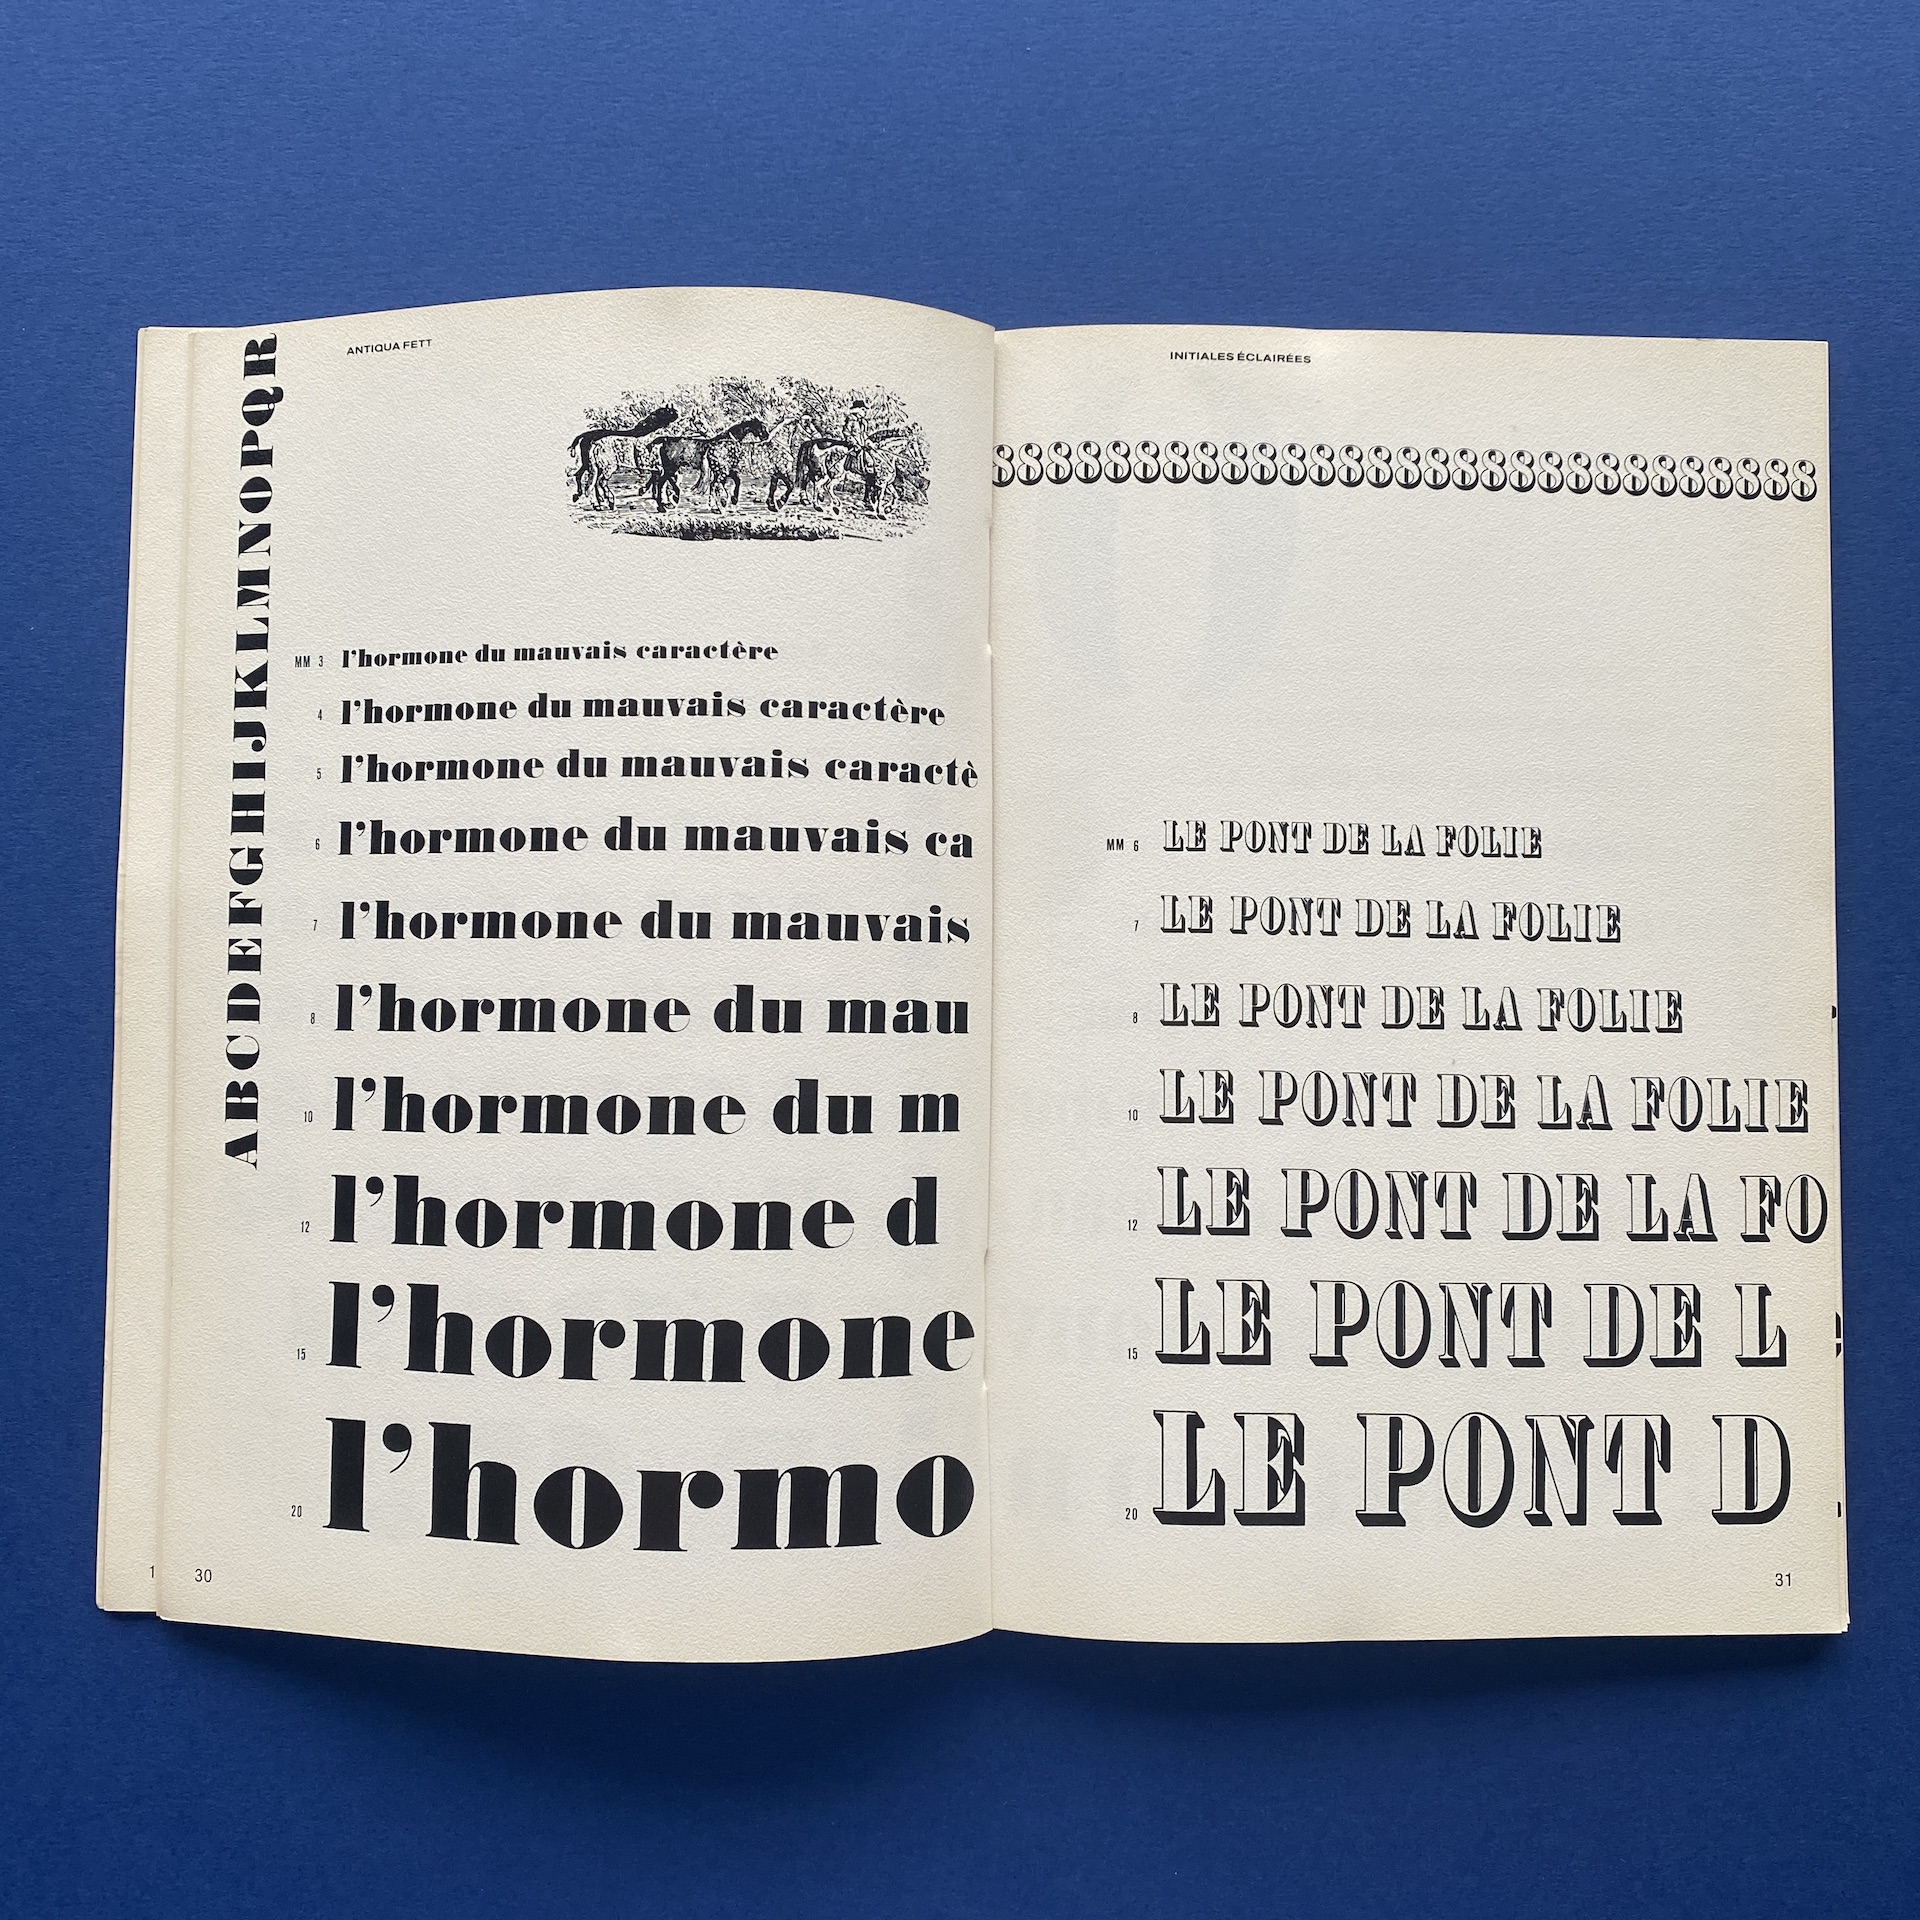 ANTIQUA FETT
ABCDEFGHIJKLMNOPQR
MM 3 l'hormone du mauvais caractère
4 l'hormone du mauvais caractère
5 l'hormone du mauvais caractè
6 l'hormone du mauvais ca
7 l'hormone du mauvais
8 l'hormone du mau
10 l'hormone du m
12 l'hormone d
15 l'hormone
20 l'hormo
1
30
INITIALES ÉCLAIRÉES
88888888888888888888888888888
MM 6 LE PONT DE LA FOLIE
7 LE PONT DE LA FOLIE
8 LE PONT DE LA FOLIE
10 LE PONT DE LA FOLIE
12 LE PONT DE LA FO
15 LE PONT DE L
20 LE PONT D
31